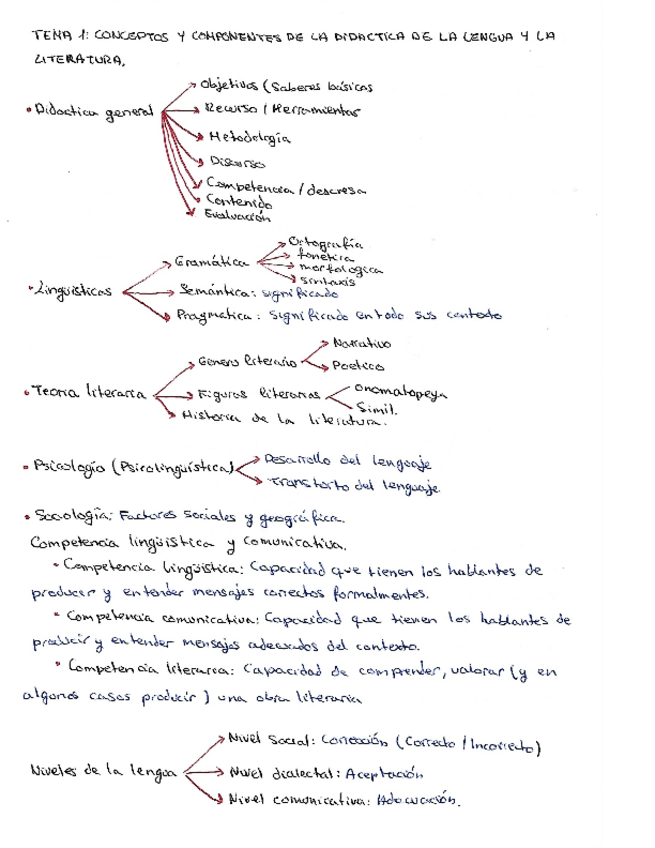 TEMA 1: CONCEPTOS Y COMPONENTES DE LA DIDACTICA DE LA LENGUA Y LA
LITERATURA.
• Didactica general
Objetivos (Saberes básicos
Recurso / Herramientas
Metodología
Discurso
Competencia / descresa
Contenido
Evaluación
• Lingüisticas
Gramática
Ortografía
fonética
morfologica
sintaxis
Semántica: significado
Pragmatica: Significado en todo sus contexto
• Teoria literaria
Genero literario
Narrativo
Poetico
Figuras literarias
Onomatopeya
Simil.
Historia de la literatura.
• Psicología (Psicolingüística)
Desarrollo del lenguaje
Transtorto del lenguaje.
• Sociología: Factores sociales y geográfica.
Competencia lingüistica y comunicativa.
• Competencia lingüistica: Capacidad que tienen los hablantes de
producir y entender mensajes correctos formalmentes.
• Competencia comunicativa: Capacidad que tienen los hablantes de
producir y entender mensajes adecuados del contexto.
• Competencia literaria: Capacidad de comprender, valorar (y en
algunos casos producir) una obra literaria
Niveles de la lengua
Nivel Social: Corrección (Correcto / Incorrecto)
Nivel dialectal: Aceptación
Nivel comunicativa: Adecuación.